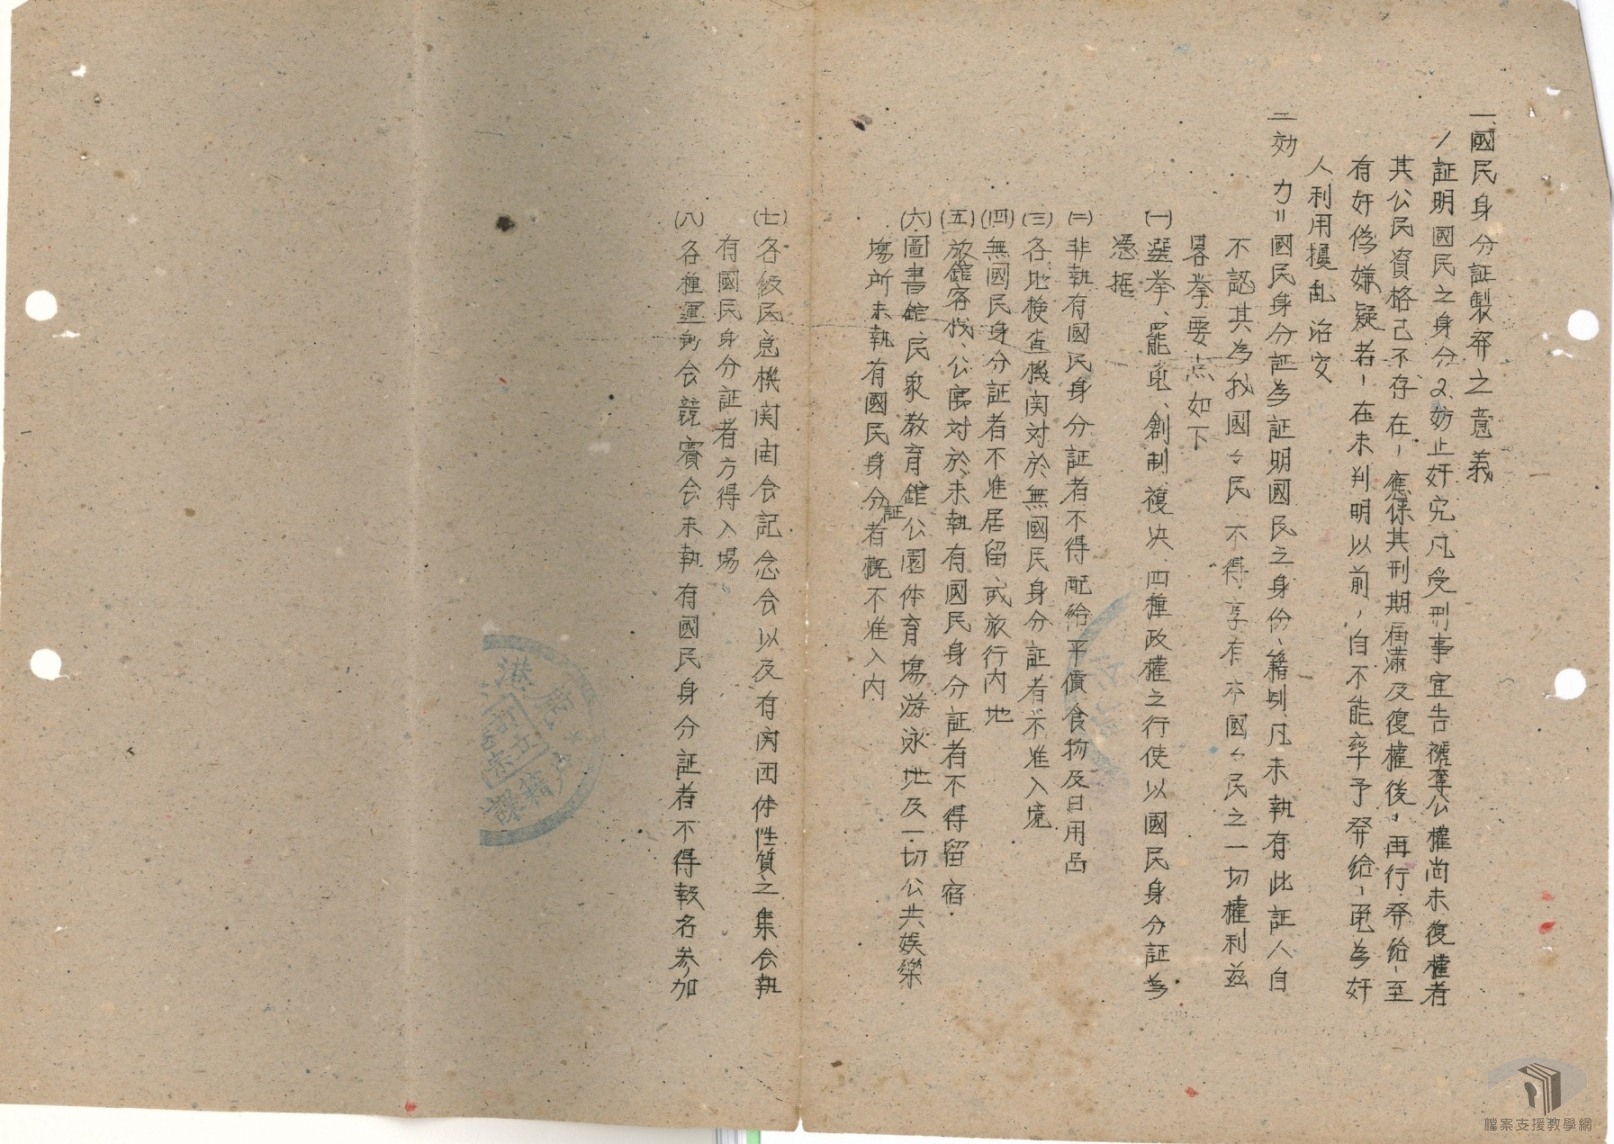 一、國民身分証製發之意義
1証明國民之身分2.妨止奸宄凡受刑事宣告褫奪公權尚未復權者
其公民資格已不存在，應保其刑期屆滿及復權後，再行發給、至
有奸偽嫌疑者，在未判明以前，自不能率予發給、免為奸
人利用擾乱治安
二効 力＝國民身分証為証明國民之身份、籍別凡未執有此証人自
不認其為我國公民 不得享有本國公民之一切權利茲
畧挙要点如下
(一)選挙、罷免、創制 複决、四種政權之行使以國民身分証為
憑挋
(二)非執有國民身分証者不得配給平價食物及日用品
(三)各地檢查機関対於無國民身分証者不准入境
(四)無國民身分証者不准居留、或旅行內地
(五)旅館客栈、公寓対於未執有國民身分証者不得留宿
(六)圖書館、民衆教育館公園体育塲游泳地及一切公共娛樂
塲所未執有國民身分証者概不准入內
(七)各級民意機関開会記念会以及有関团体性質之集会執
有國民身分証者方得入場
(八)各種運動会競賽会未執有國民身分証者不得報名参加
港
戶籍課
檔案支援教學網